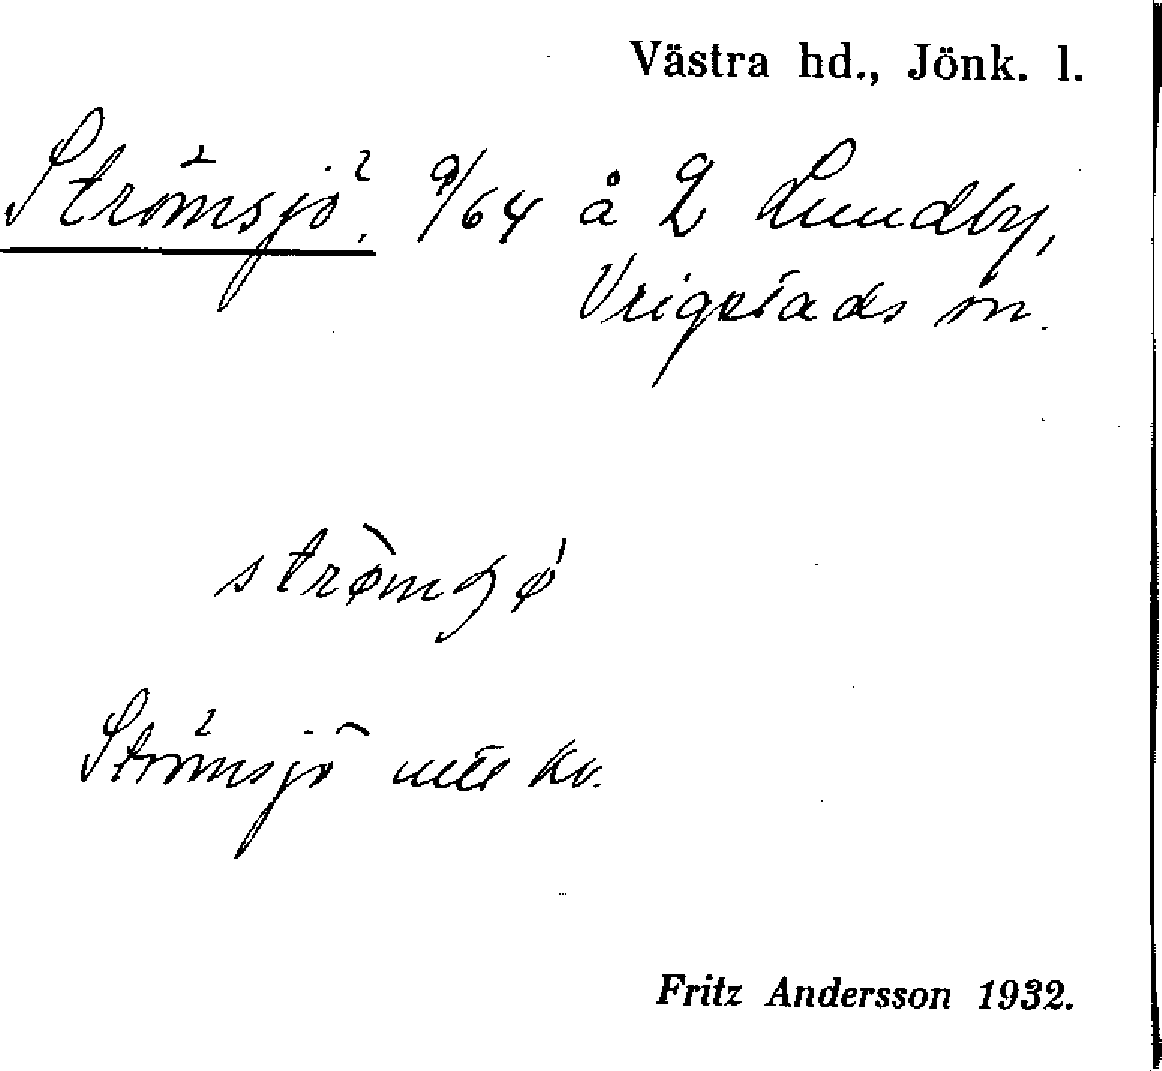 Västra hd., Jönk. l.
Strömsjö, 9/64 å 2 Lundby,
Vrigstads sn.
Strömsjö utsl kv.
Fritz Andersson 1932.